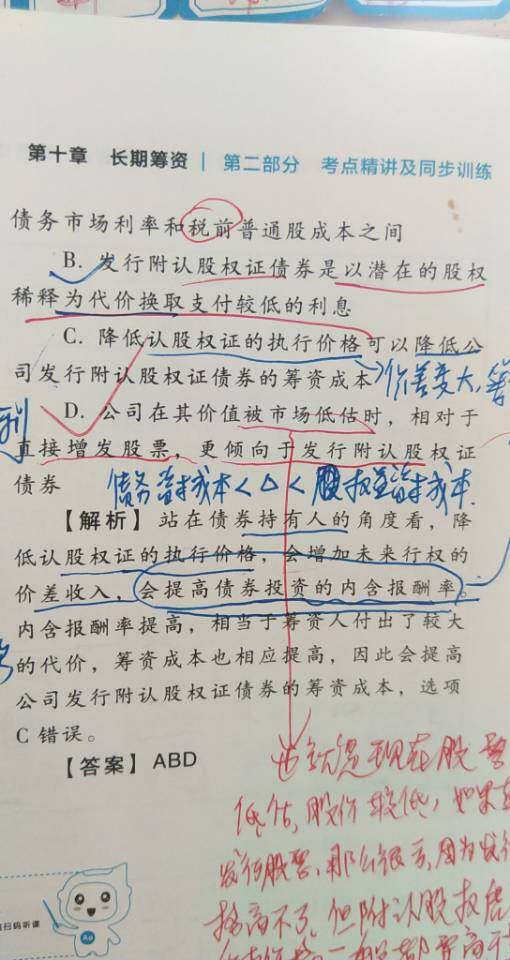 第十章 长期筹资 | 第二部分 考点精讲及同步训练
债务市场利率和税前普通股成本之间
B. 发行附认股权证债券是以潜在的股权
稀释为代价换取支付较低的利息
C. 降低认股权证的执行价格可以降低公
司发行附认股权证债券的筹资成本
价差变大,筹
D. 公司在其价值被市场低估时，相对于
直接增发股票，更倾向于发行附认股权证
债券
债务资本成本<△<股权资本成本
【解析】站在债券持有人的角度看，降
低认股权证的执行价格，会增加未来行权的
价差收入，会提高债券投资的内含报酬率。
内含报酬率提高，相当于筹资人付出了较大
的代价，筹资成本也相应提高，因此会提高
公司发行附认股权证债券的筹资成本，选项
C 错误。
【答案】ABD
也就是现在股票
低估,股价较低,如果直
发行股票,那么很亏,因为发行
格高不了,但附认股权
扫码听课